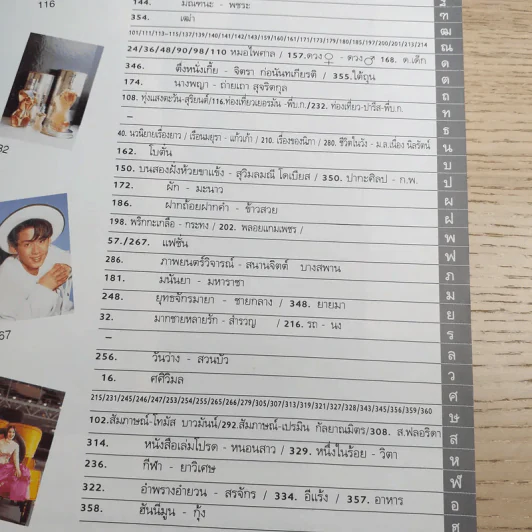 116
144. มัณฑนะ - พชระ
354. เฒ่า
101/111/113-115/137/139/140/141/142/143/159/160/161/171/173/179/180/185/197/200/201/213/214
24/36/48/90/98/110 หมอไพศาล / 157.ดวง♀ - ดวง♂ 168. ด.เด็ก
346. ตึ๋งหนังเกี๊ย - จิตรา ก่อนันทเกียรติ / 355.ใต้ถุน
174. นางพญา - ถ่ายเถา สุจริตกุล
108. ทุ่งแสงตะวัน-สุริยนต์/116.ท่องเที่ยวเยอรมัน -พี่บ.ก./232. ท่องเที่ยว-ปารีส-พี่บ.ก.
–
40. นวนิยายเรื่องยาว / เรือนมยุรา - แก้วเก้า / 210. เรื่องของนิภา / 280. ชีวิตในวัง - ม.ล.เนื่อง นิลรัตน์
162. โบตั๋น
150. บนสองฝั่งห้วยขาแข้ง - สุวิมลมณี โดเบียส / 350. ปากะศิลป - ก.พ.
172. ผัก - มะนาว
186. ฝากถ้อยฝากคำ - ข้าวสวย
198. พริกกะเกลือ - กระทง / 202. พลอยแกมเพชร /
57./267. แฟชั่น
286. ภาพยนตร์วิจารณ์ - สนานจิตต์ บางสพาน
181. มนันยา - มหาราชา
248. ยุทธจักรมายา - ชายกลาง / 348. ยายมา
32. มากชายหลายรัก - สำรวญ / 216. รถ - นง
–
256. วันว่าง - สวนบัว
16. ศศิวิมล
215/231/245/246/247/253/254/255/265/266/279/305/307/313/319/321/327/328/343/345/356/359/360
102.สัมภาษณ์-โทมัส บาวมันน์/292.สัมภาษณ์-เปรมิน กัลยาณมิตร/308. ส.ฟลอริดา
314. หนังสือเล่มโปรด - หนอนสาว / 329. หนึ่งในร้อย - วิตา
236. กีฬา - ยาวิเศษ
322. อำพรางอำยวน - สรจักร / 334. อีแร้ง / 357. อาหาร
358. ฮันนีมูน - กุ้ง
ฑ
ฒ
ณ
ด
ต
ถ
ท
ธ
น
บ
ป
ผ
ฝ
พ
ฟ
ภ
ม
ย
ร
ล
ว
ศ
ษ
ส
ห
ฬ
อ